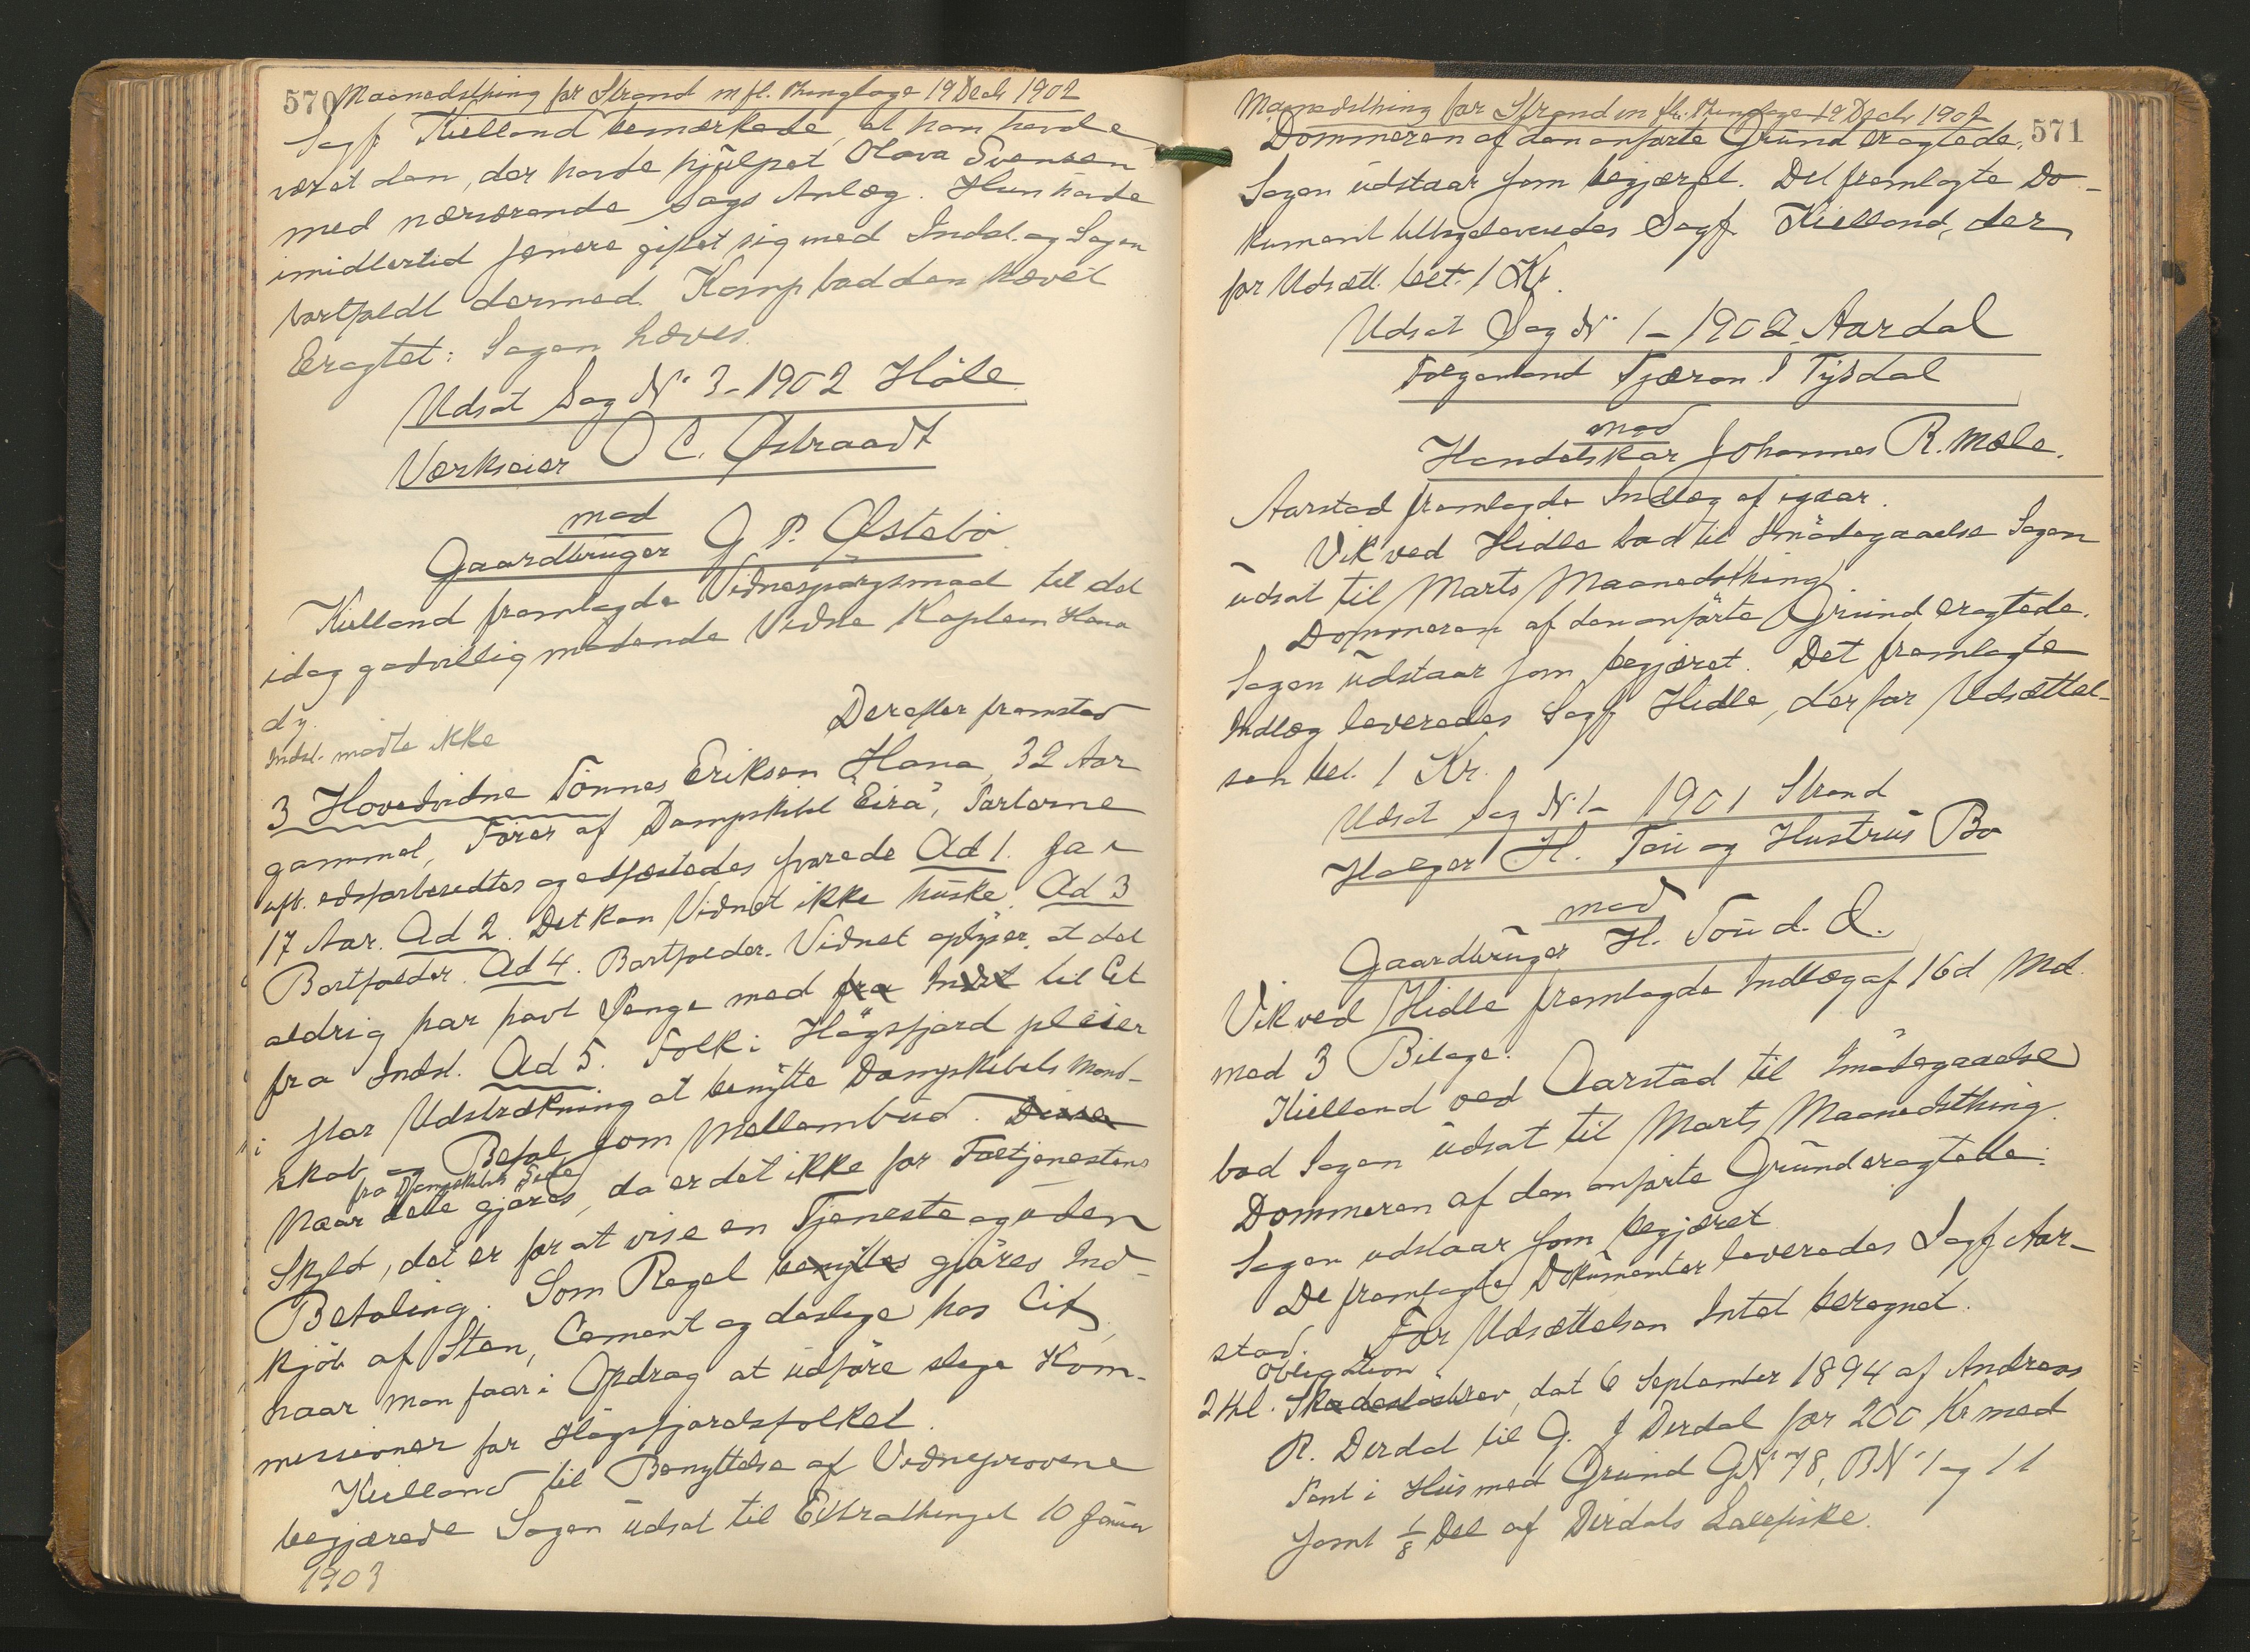 570 Maanedsthing for Strand m fl. Thinglage 19 Decb 1902
Sagf Kielland bemærkede, at han havde
været den, der havde hjulpet Olava Svensen
med nærværende Sags Anlæg. Hun havde
imidlertid senere giftet sig med Indst. og Sagen
bortfaldt dermed. Komp bad den hævet
Eragtet: Sagen hæves.
Udsat Sag No 3-1902 Höle
Værkseier O C. Østraadt
mod
Gaardbruger G P. Østebö
Kielland fremlagde Vidnespørgsmaal til det
idag godvillig mødende Vidne Kaptein Hana
Indst. mødte ikke
Derefter fremstod
3 Hovedvidne Tönnes Eriksen Hana, 32 Aar
gammel, Förer af Dampskibet "Eira", Parterne
ub. edsforberedtes og edfæstedes svarede Ad 1. Ja i
17 Aar. Ad 2. Det kan Vidnet ikke huske. Ad 3
Bortfalder. Ad 4. Bortfalder. Vidnet oplyser, at det
aldrig har havt Penge med fra Indst til Cit
fra Indst. Ad 5. Folk i Högsfjord pleier
i stor Udstrækning at benytte Dampskibets Mand-
skab og Befal som Mellembud. Disse
fra Dampskibets Side
Naar dette gjöres, da er det ikke for Fortjenestens
Skyld, det er for at vise en Tjeneste og uden
Betaling. Som Regel benyttes gjöres Ind-
kjöb af Sten, Cement og deslige hos Cit,
naar man faar i Opdrag at udföre slige Kom-
missioner for Högsfjordsfolket.
Kielland til Benyttelse af Vidneprovene
begjærede Sagen udsat til Extrathinget 10 Januar
1903
Maanedsthing for Strand m fl. Thinglage 19 Decb 1902
571
Dommeren af den anførte Grund eragtede:
Sagen udstaar som begjæret. Det fremlagte Do-
kument tilbageleveredes Sagf. Kielland, der
for Udsætt. bet. 1 Kr.
Udsat Sag No 1-1902 Aardal
Følgemand Tjæran I Tysdal
mod
Handelskar Johannes R. Mæle.
Aarstad fremlagde Indlæg af igaar.
Vik ved Hidle bad til Imödegaaelse Sagen
udsat til Marts Maanedsthing
Dommeren af den anførte Grund eragtede.
Sagen udstaar som begjæret. Det fremlagte
Indlæg leveredes Sagf Hidle, der for Udsættel-
sen bet. 1 Kr.
Udsat Sag No 1- 1901 Strand
Holger H. Tou og Hustrus Bo
mod
Gaardbruger H. Tou d. Æ.
Vik ved Hidle fremlagde Indlæg af 16 d Md.
med 3 Bilage.
Kielland ved Aarstad til Imödegaaelse
bad Sagen udsat til Marts Maanedsthing.
Dommeren af den anførte Grund eragtede:
Sagen udstaar som begjæret
De fremlagte Dokumenter leveredes Sagf Aar-
stad. For Udsættelsen Intet beregnet.
Obligation
2 thl. Skadeslösbrev, dat 6 September 1894 af Andreas
R. Dirdal til G. J Dirdal for 200 Kr med
Pant i Hus med Grund GNo 78, BNo 1 og 11
samt 1/8 Del af Dirdals Laxefiske.